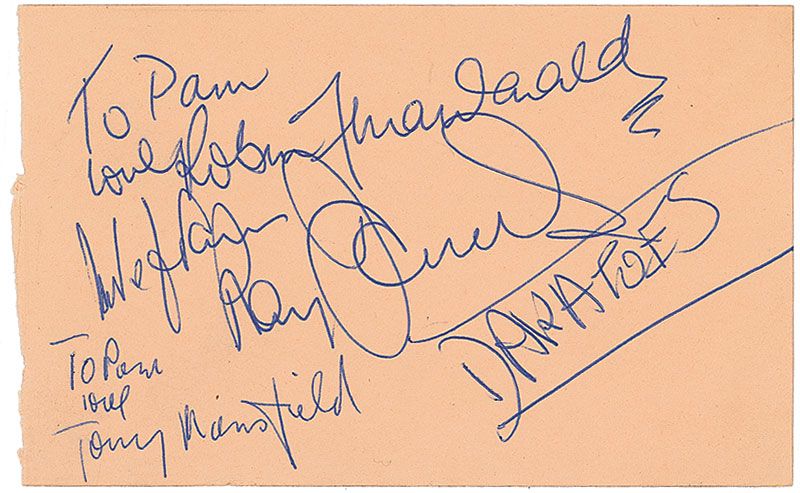 To Pam
love Robin MacDonald
Pam
Ray Jones
DAKATOES
To Pam
love
Tony Mansfield